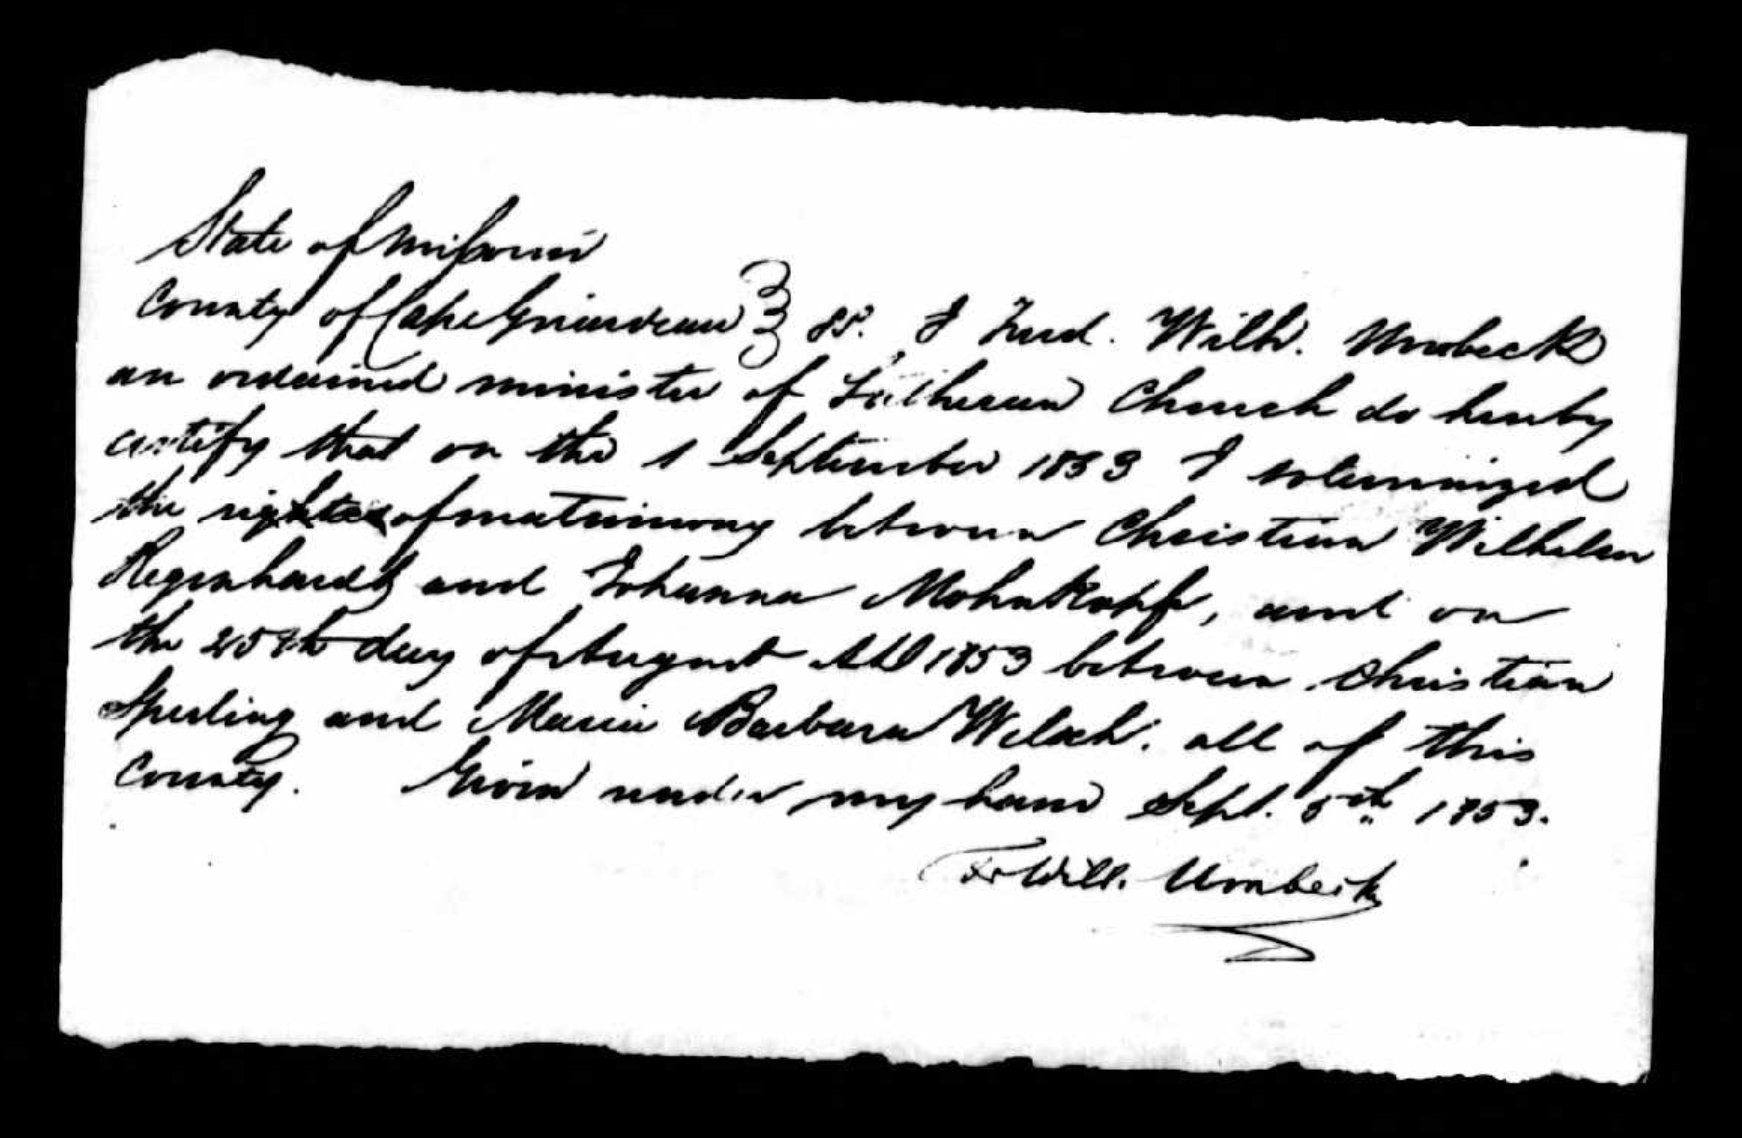 State of Missouri
County of Cape Girardeau } SS. I Ferd. Wilh. Umbeck
an ordained minister of Lutheran Church do hereby
certify that on the 1 September 1853 I solemnized
the rightes of matrimony between Christian Wilhelm
Regenhardt and Johanna Mohnkopf, and on
the 25th day of August AD 1853 between Christian
Sperling and Maria Barbara Welsch. all of this
County. Given under my hand Sept. 5th 1853.
Fr Wilh. Umbeck